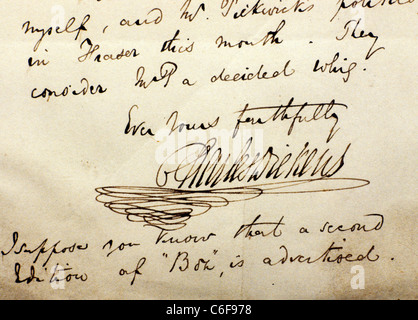 myself, and Mr. Pickwick's political
in Fraser this month. They
consider Mr P a decided whig.
Ever Yours faithfully
Charles Dickens
I suppose you know that a second
Edition of "Boz", is advertised.
alamy
alamy
Image ID: C6F978
www.alamy.com